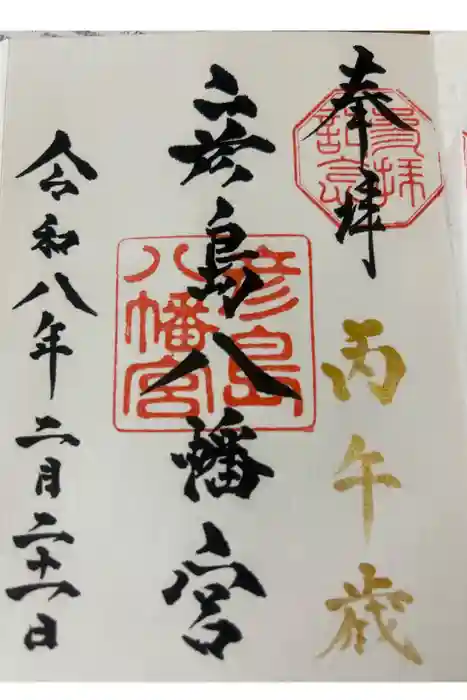 奉拝
丙午歳
彦島八幡宮
令和八年二月二十一日
参拝
記念
彦島
八幡宮